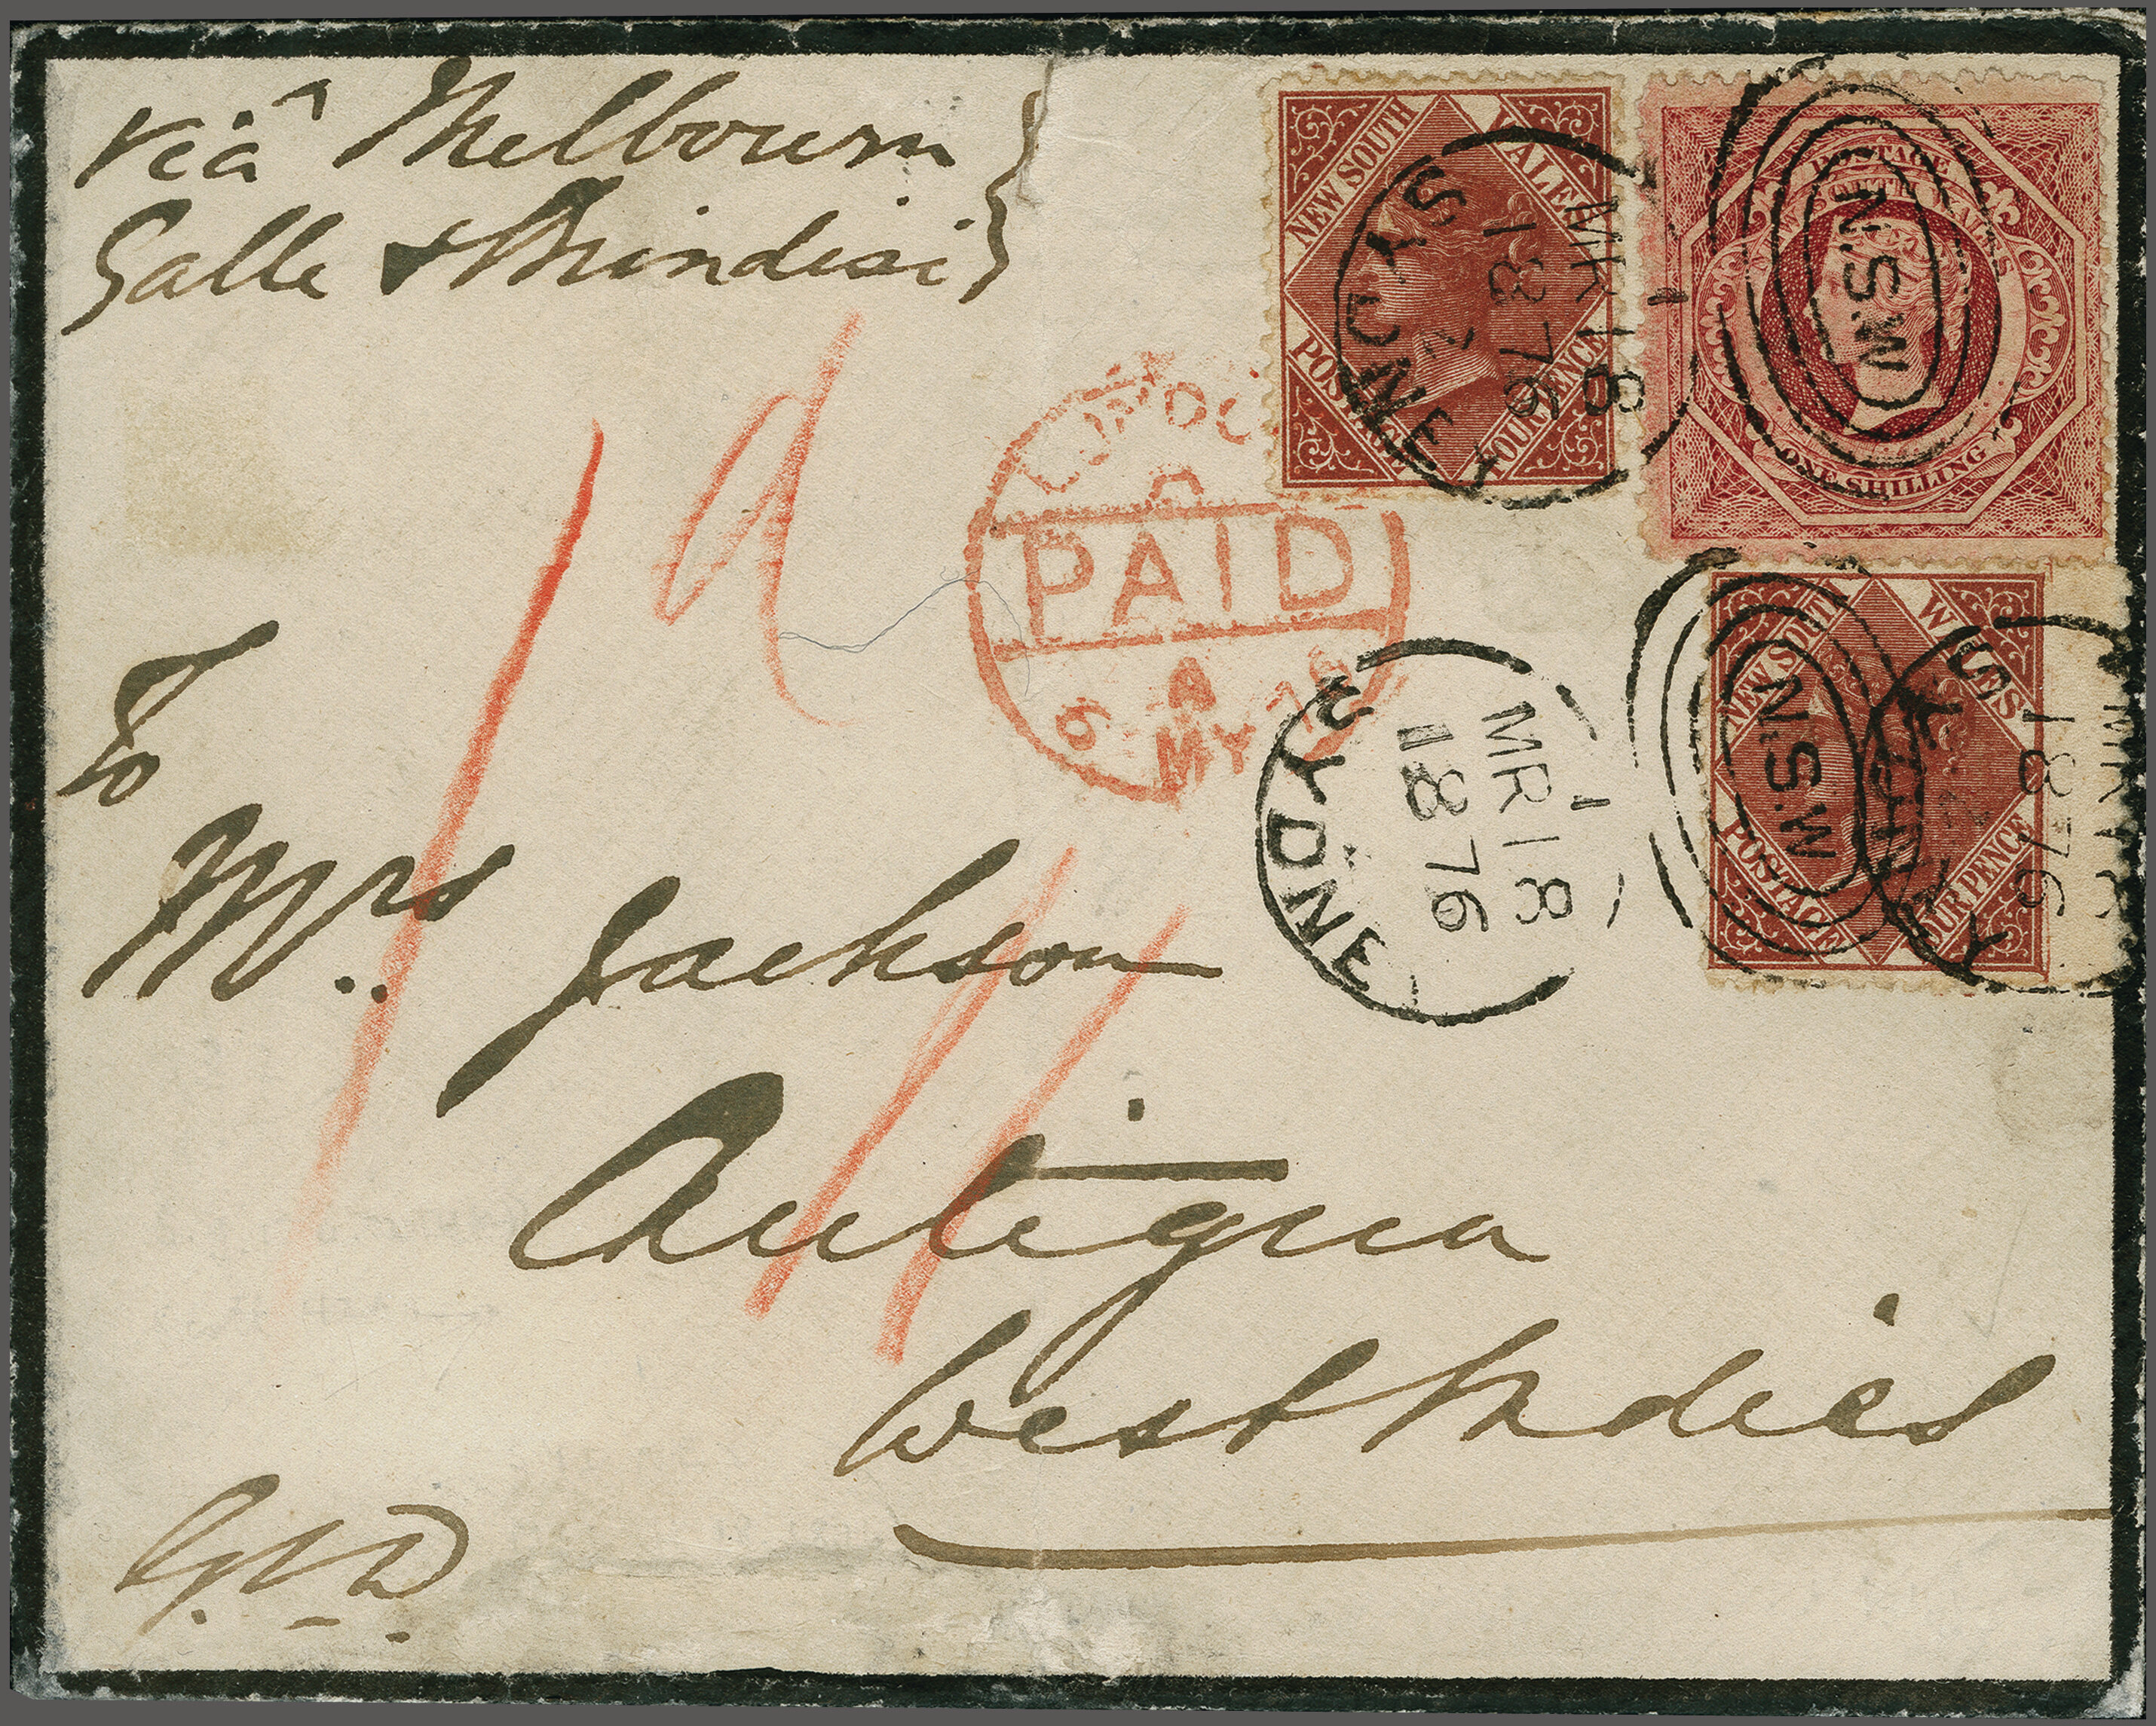 viâ Melbourn
Galle & Brindisi
1d
To
Mrs. Jackson
Antigua
West Indies
NEW SOUTH WALES
POSTAGE FOURPENCE
SYDNEY
1
MR 18
1876
2
POSTAGE
NEW SOUTH WALES
ONE SHILLING
N.S.W
LONDON
PAID
A
6 MY 76
SYDNEY
1
MR 18
1876
NEW SOUTH WALES
POSTAGE FOURPENCE
N.S.W
SYDNEY
MR 18
1876